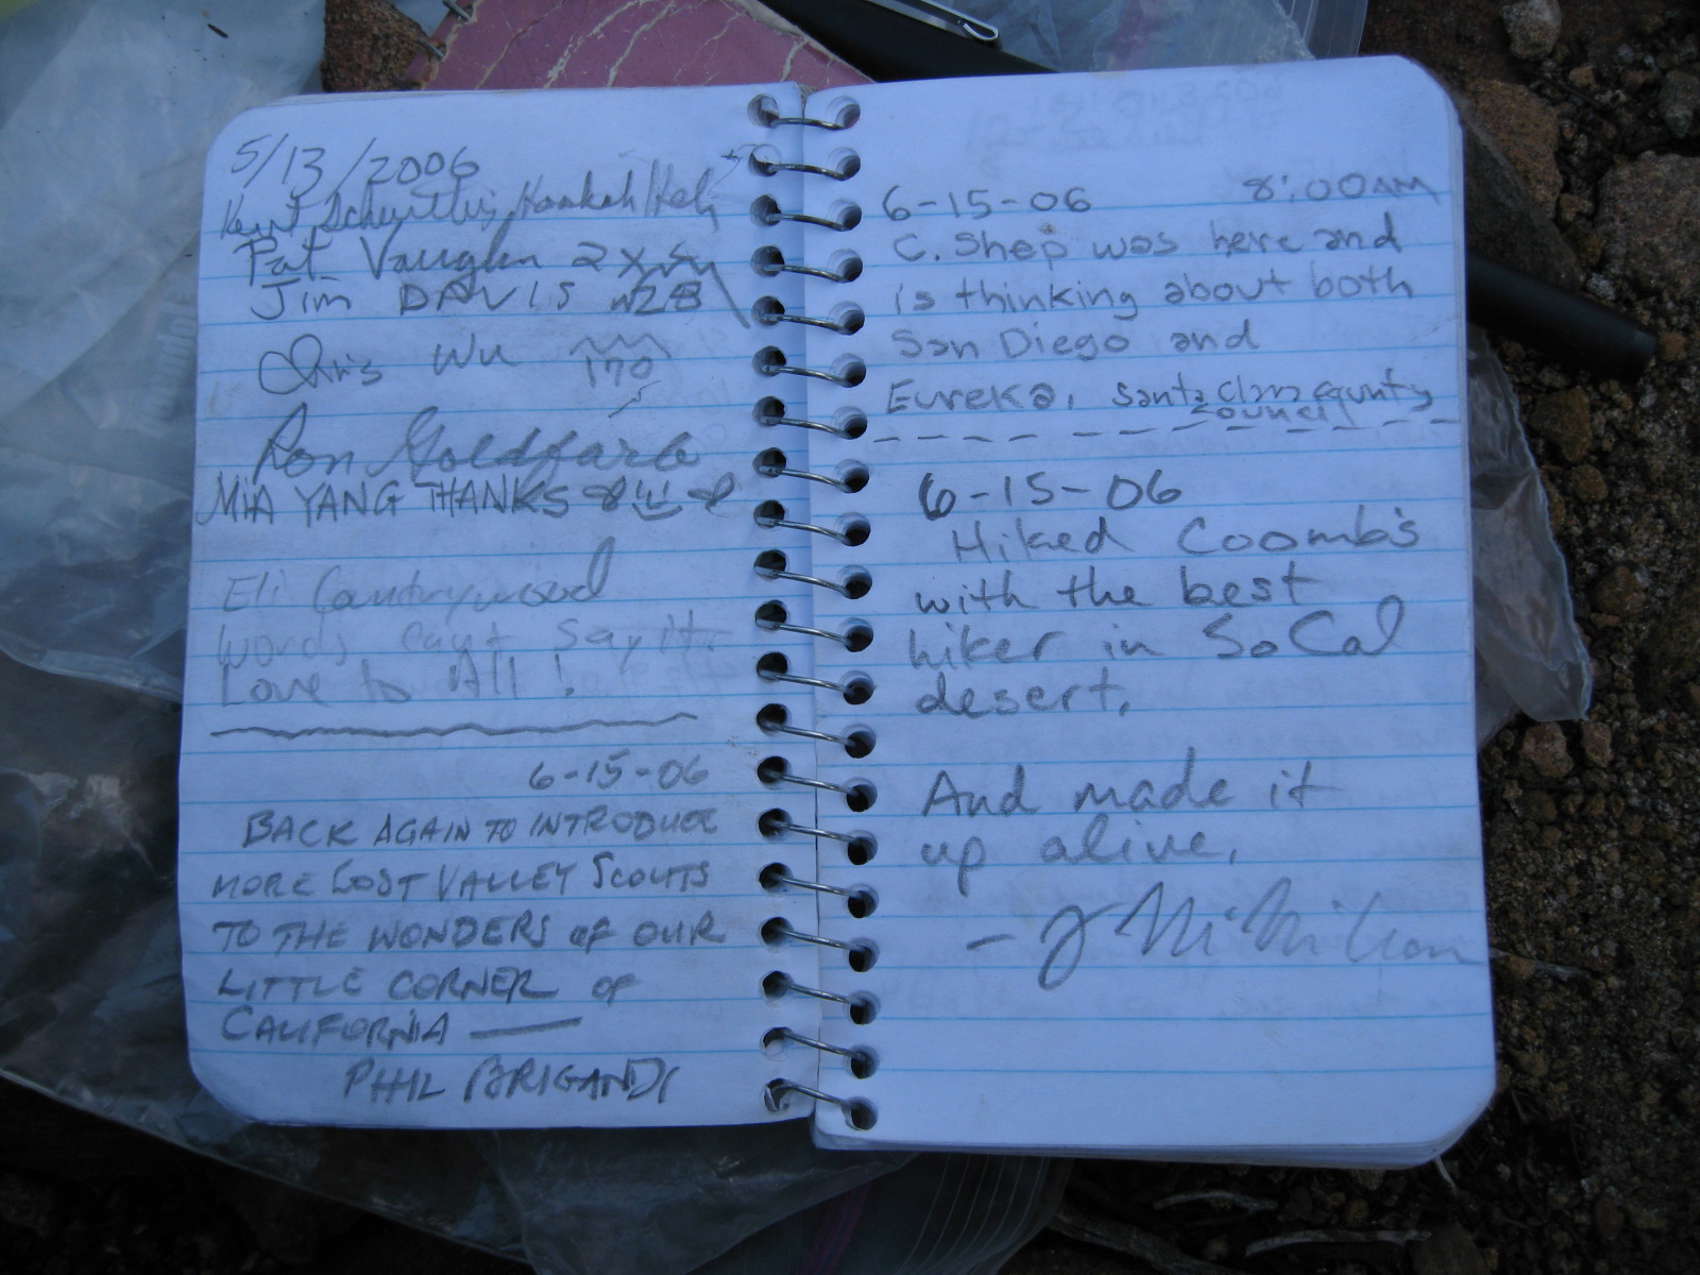 5/13/2006
Kent
Pat Vaughn 2x
Jim DAVIS
Chris Wu 170
Ron Goldfarb
MIA YANG THANKS
Eli Countrywood
words can't say it.
Love to All!
6-15-06
BACK AGAIN TO INTRODUCE
MORE LOST VALLEY SCOUTS
TO THE WONDERS of OUR
LITTLE CORNER of
CALIFORNIA —
PHIL BRIGANDI
6-15-06 8:00AM
C. Shep was here and
is thinking about both
San Diego and
Eureka, Santa Clara County
council
6-15-06
Hiked Coomb's
with the best
hiker in SoCal
desert.
And made it
up alive.
- J